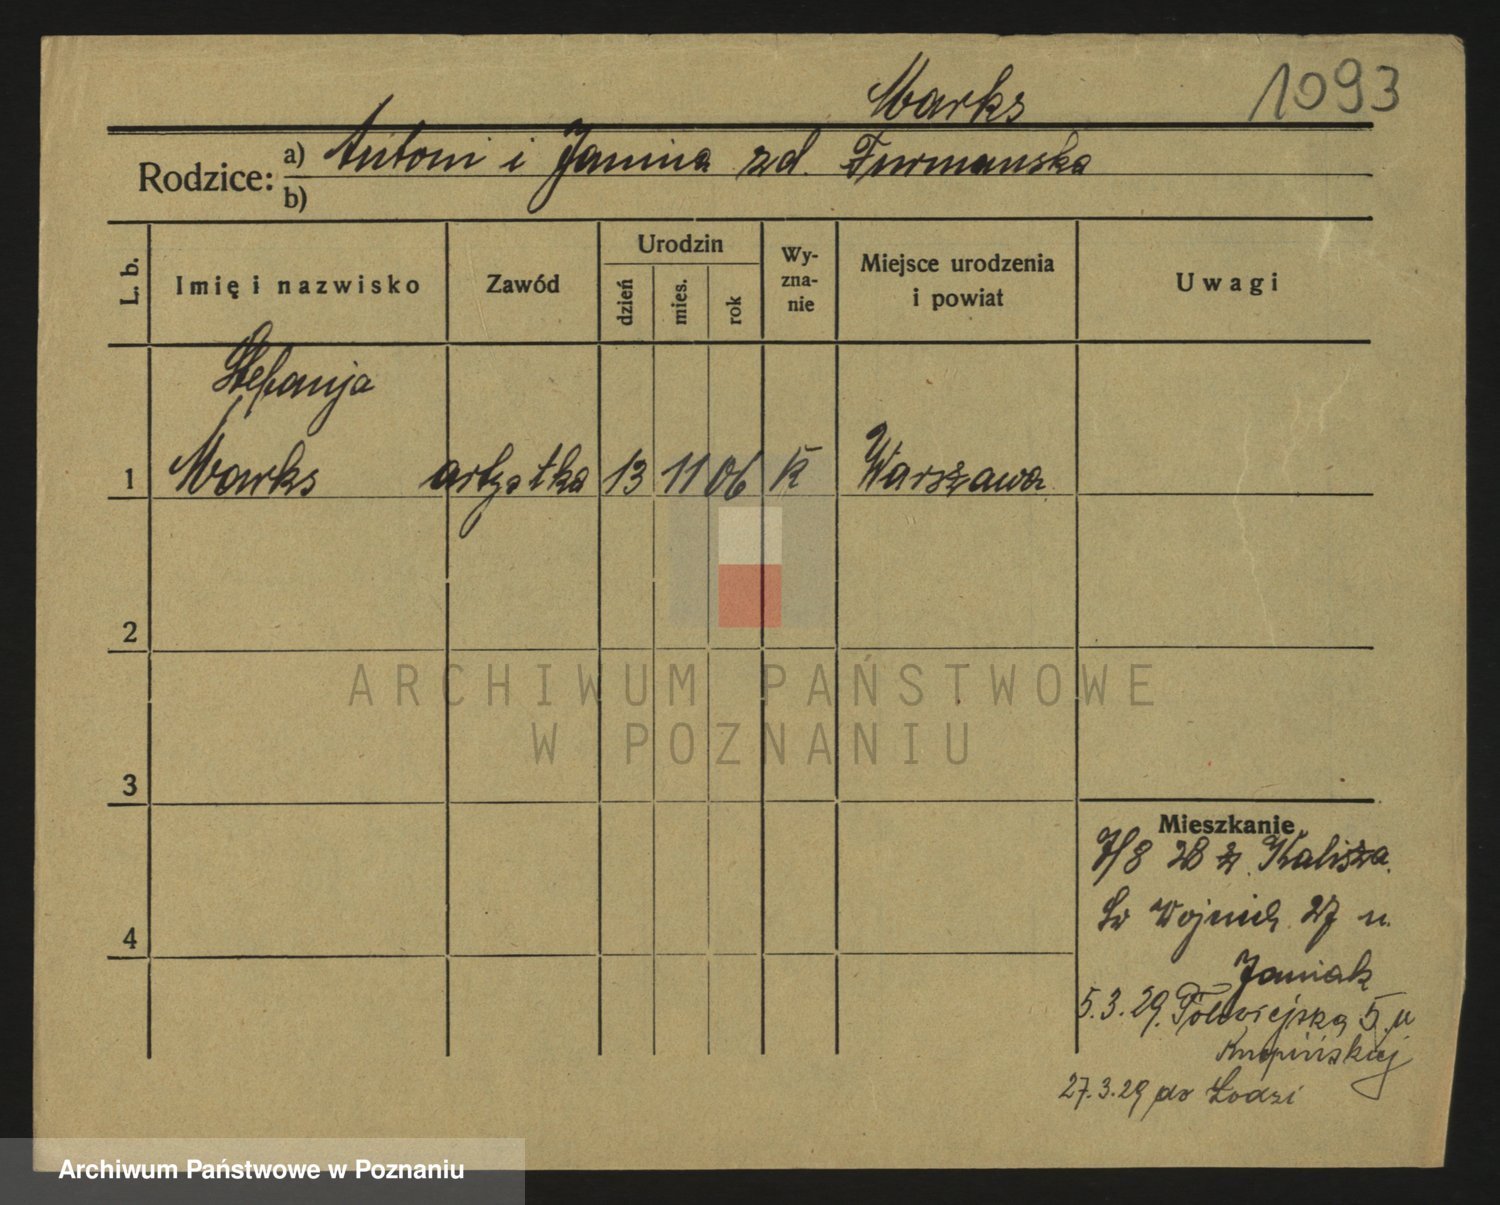 Marks
1093
Rodzice: a) Antoni i Janina zd. Furmanska
b)
L. b.
Imię i nazwisko
Zawód
Urodzin
dzień
mies.
rok
Wy-
zna-
nie
Miejsce urodzenia
i powiat
Uwagi
Stefanja
1 Marks artystka 13 11 06 K Warszawa
2
3
4
Mieszkanie
7/8 28 z Kalisza.
Św Wojciech 27 u.
Janiak
5.3.29. Półwiejska 5 u
Krupińskiej
27.3.29 do Łodzi
ARCHIWUM PAŃSTWOWE
W POZNANIU
Archiwum Państwowe w Poznaniu